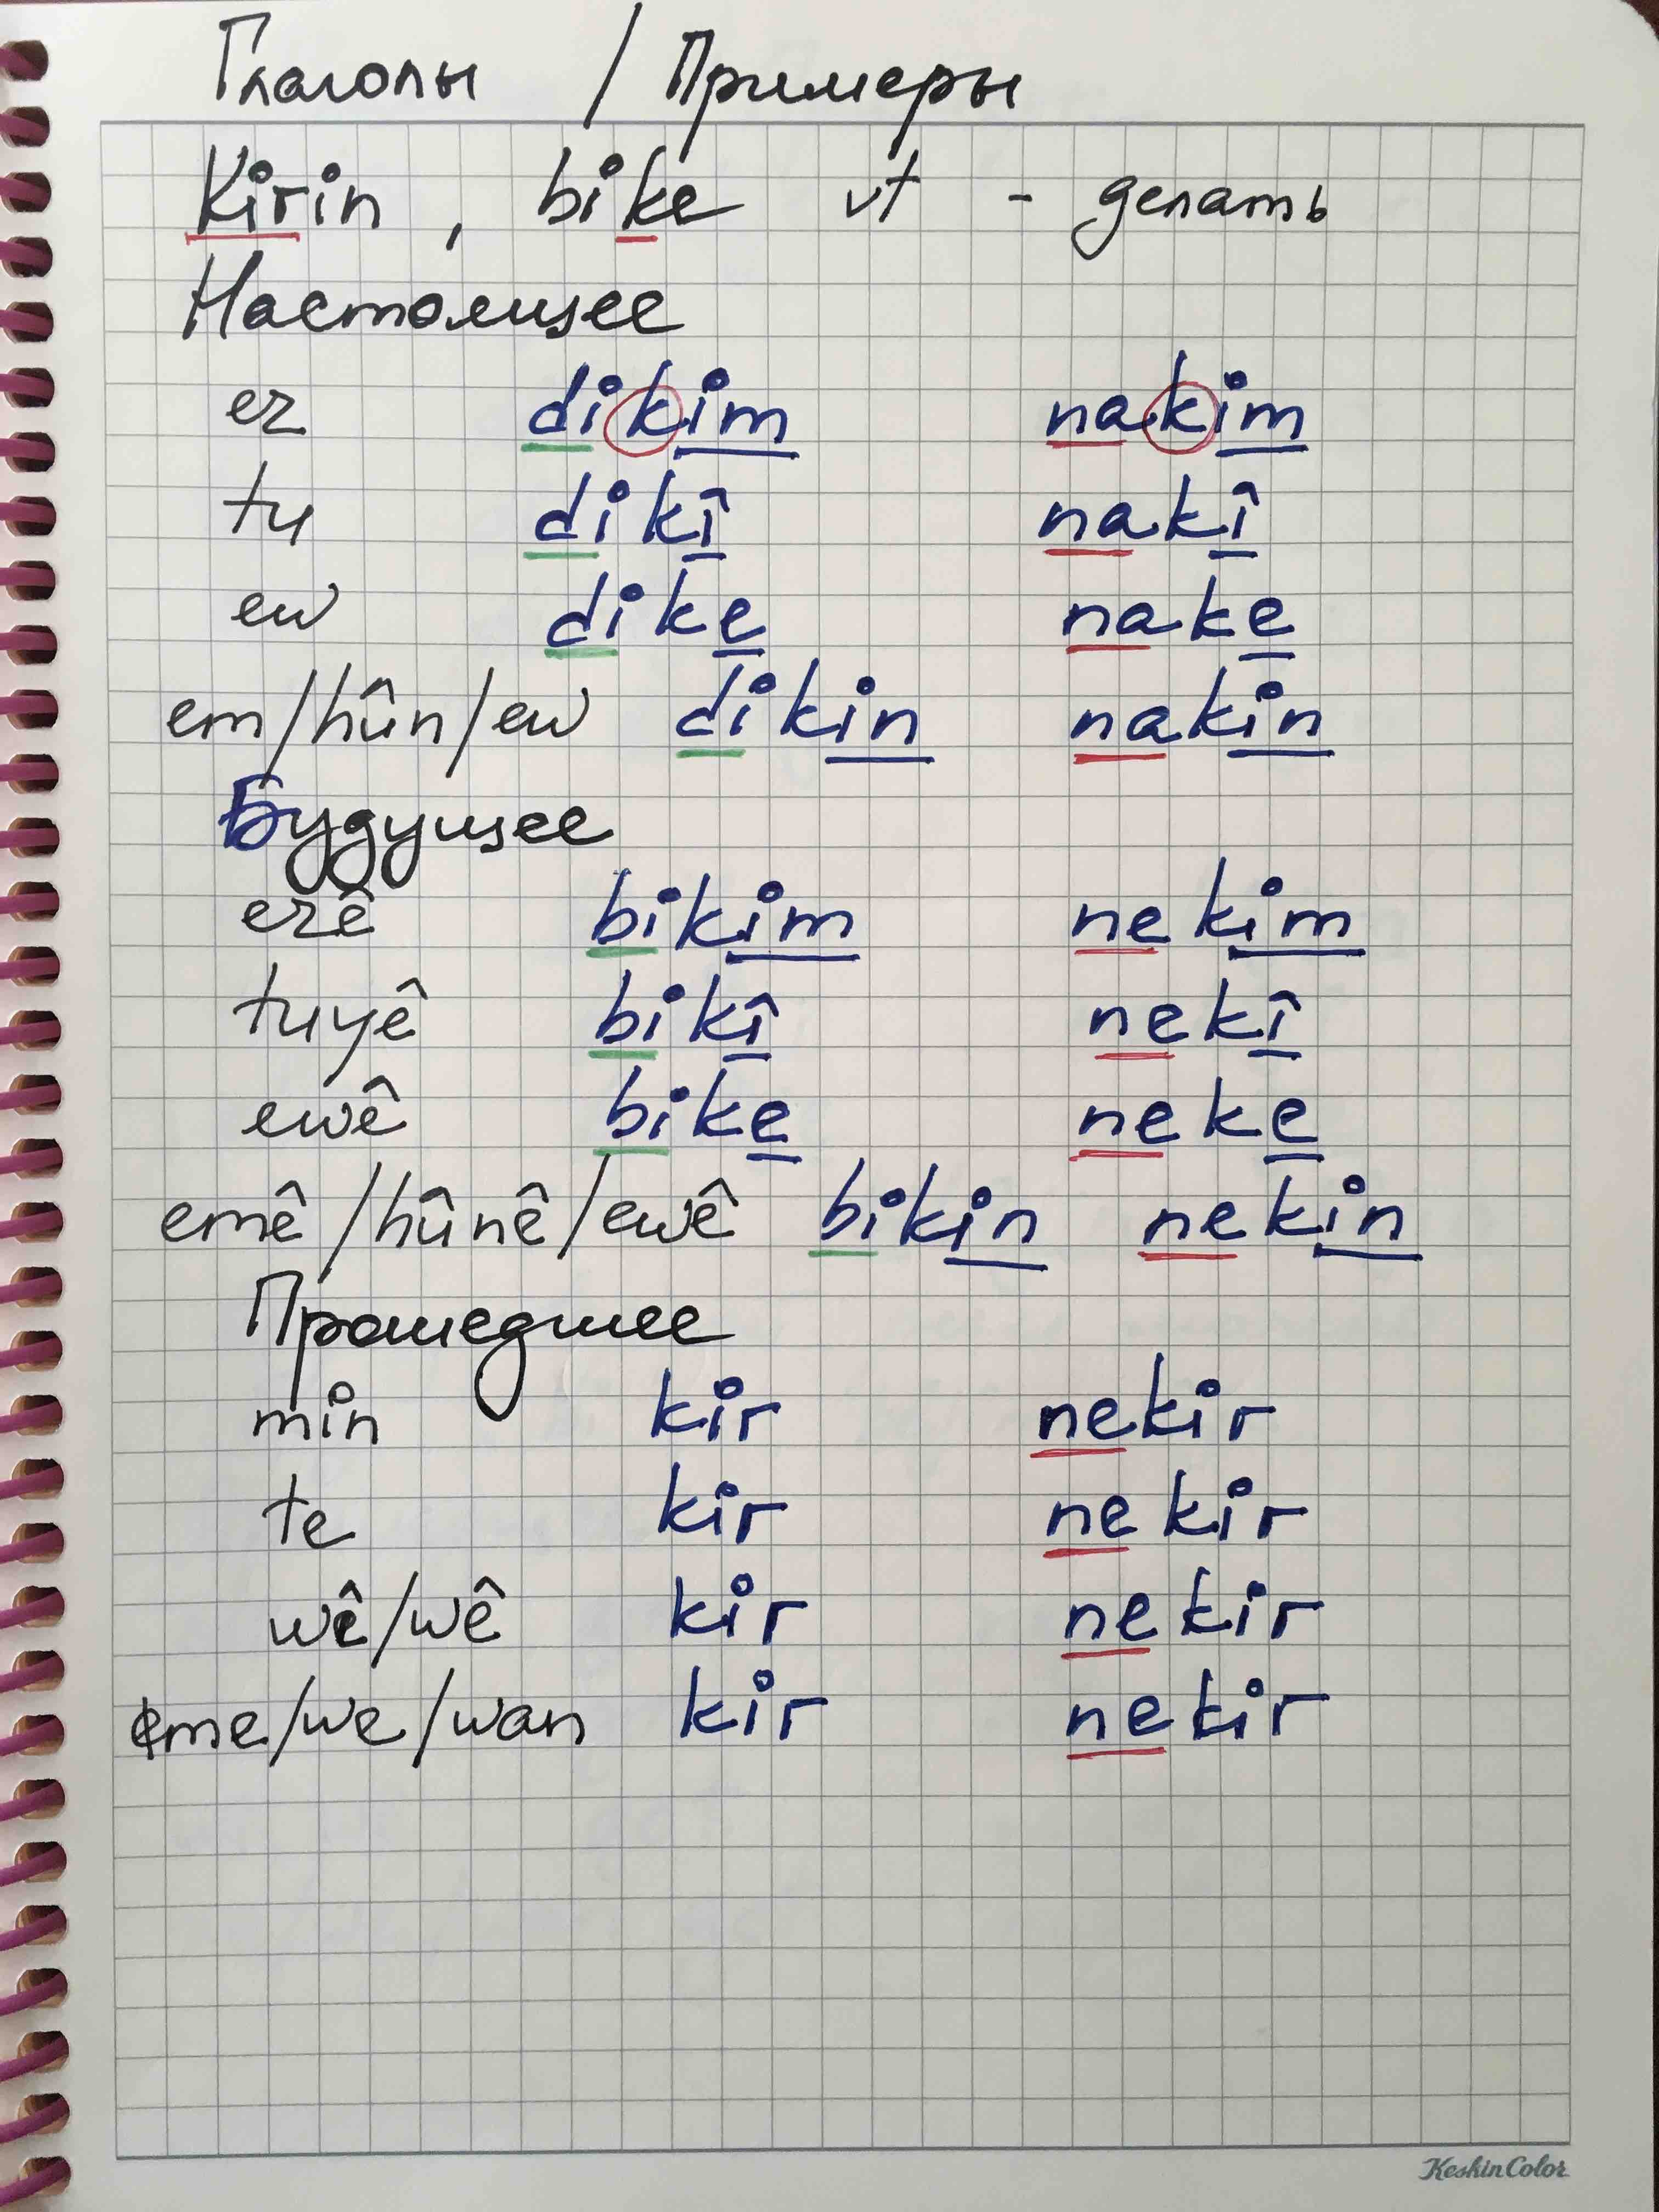 Глаголы / Примеры
Kirin, bike vt - делать
Настоящее
ez dikim nakim
tu dikî nakî
ew dike nake
em/hûn/ew dikin nakin
Будущее
ezê bikim nekim
tuyê bikî nekî
ewê bike neke
emê/hûnê/ewê bikin nekin
Прошедшее
min kir nekir
te kir nekir
wê/wê kir nekir
me/we/wan kir nekir
KeskinColor